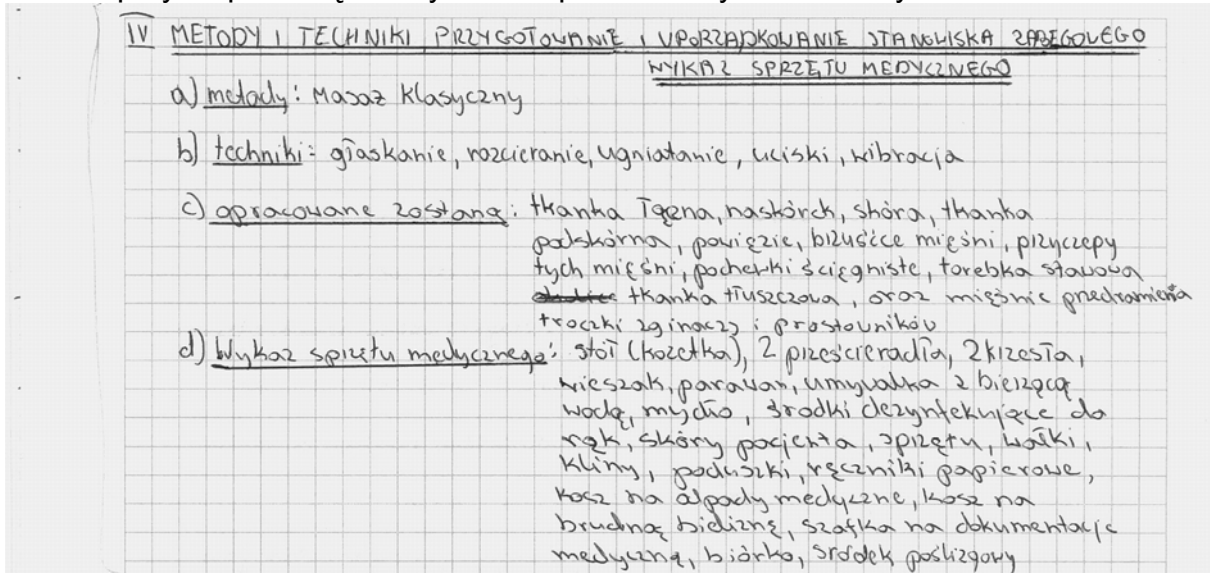 IV METODY I TECHNIKI PRZYGOTOWANIE I UPORZĄDKOWANIE STANOWISKA ZABIEGOWEGO
WYKAZ SPRZĘTU MEDYCZNEGO
a) metody: Masaż klasyczny
b) techniki: głaskanie, rozcieranie, ugniatanie, uciski, wibracja
c) opracowane zostaną: tkanka łączna, naskórek, skóra, tkanka
podskórna, powięzie, brzuśćce mięśni, przyczepy
tych mięśni, pochewki ścięgniste, torebka stawowa
tkanka tłuszczowa, oraz mięśnie przedramienia
troczki zginaczy i prostowników
d) Wykaz sprzętu medycznego: stół (kozetka), 2 prześcieradła, 2 krzesła,
wieszak, parawan, umywalka z bieżącą
wodą, mydło, środki dezynfekujące do
rąk, skóry pacjenta, sprzętu, wałki,
kliny, poduszki, ręczniki papierowe,
kosz na odpady medyczne, kosz na
brudną bieliznę, szafka na dokumentację
medyczną, biórko, środek poślizgowy